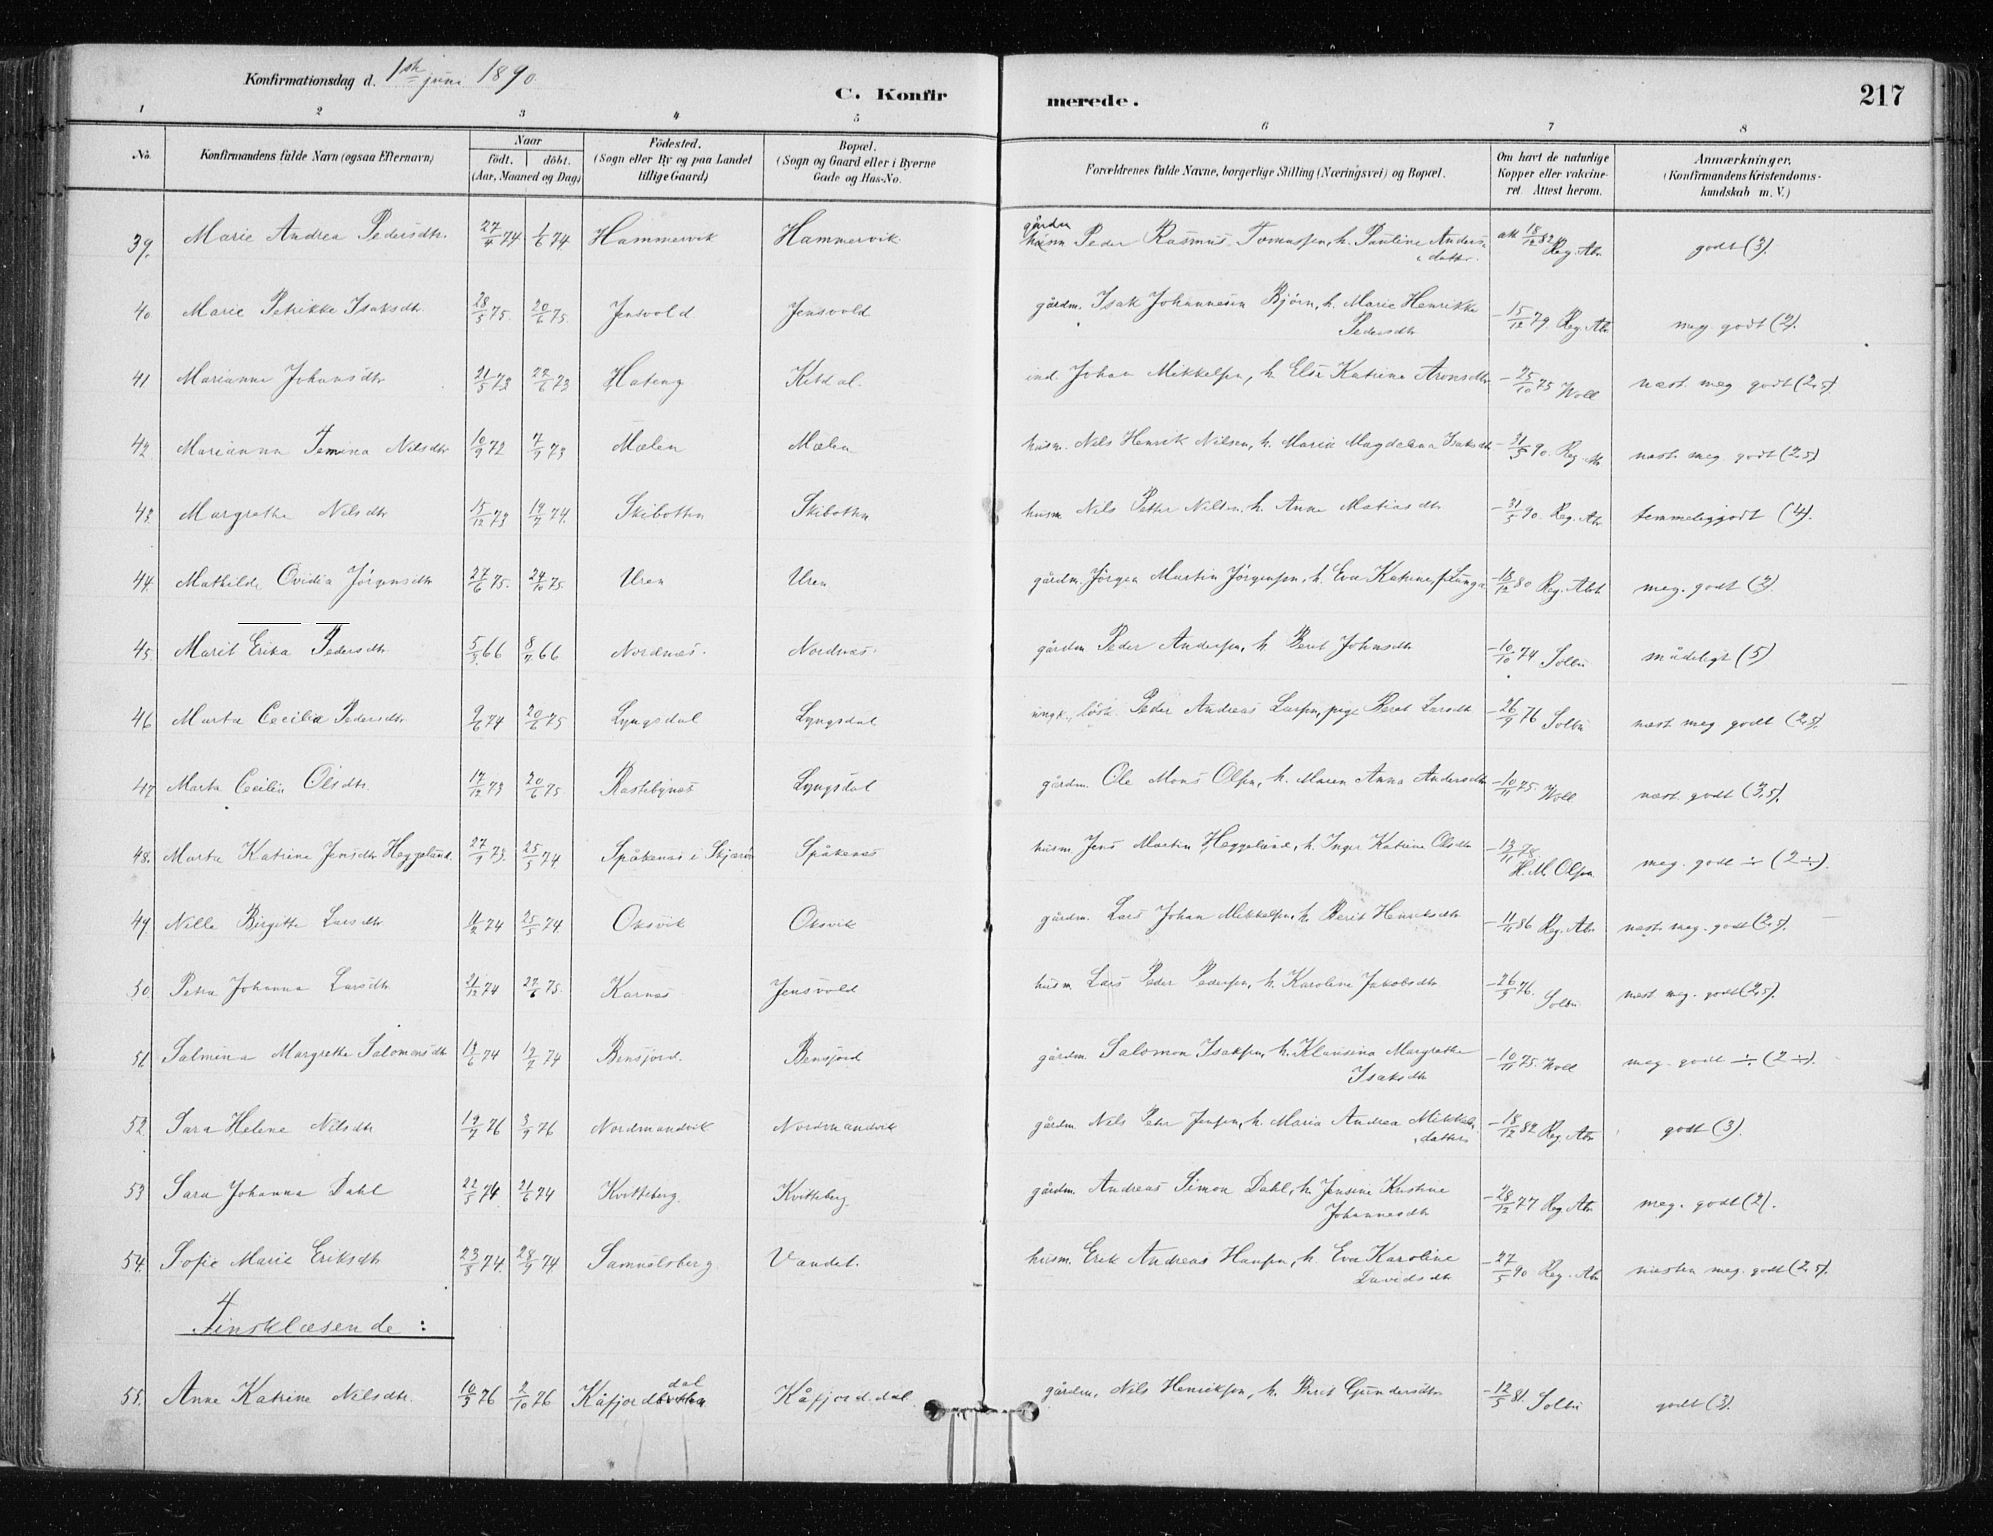 Konfirmationsdag d. 1ste juni 1890.
C. Konfirmerede.
217
1 2 3 4 5 6 7 8
No. Konfirmandens fulde Navn (ogsaa Efternavn) Naar födt. döbt. (Aar, Maaned og Dag) Födested. (Sogn eller By og paa Landet tillige Gaard) Bopæl. (Sogn og Gaard eller i Byerne Gade og Hus-No. Forældrenes fulde Navne, borgerlige Stilling (Næringsvei) og Bopæl. Om havt de naturlige Kopper eller vakcineret. Attest herom. Anmærkninger. (Konfirmandens Kristendomskundskab m. V.)
39. Marie Andrea Pedersdtr. 27/4 74 1/6 74 Hammervik Hammervik gårdm Peder Rasmus Tomassen, h. Pautine Andersdatter. att 18/12 82 Reg. Abr. godt (3).
40 Marie Petrikke Isaksdtr. 28/5 75. 20/6 75. Jensvold Jensvold gårdm. Isak Johannesen Bjørn, h. Marie Henrikke Pedersdtr - 15/12 79 Reg. Abr meg. godt (2).
41 Marianna Johansdtr 21/5 73 22/6 73 Hateng Kitdal. ind. Johan Mikkelsen, h. Else Katrina Aronsdtr - 25/10 75 Woll næst. meg godt (2,5).
42 Marianna Jemina Nilsdtr 10/9 72 7/9 73 Mælen Mælen husm. Nils Henrik Nilsen, h. Maria Magdelena Isaksdtr - 31/5 90. Reg. Abr næst. meg. godt (2,5)
43. Margrethe Nilsdtr 15/12 73 19/7 74. Skibotten Skibotten husm. Nils Petter Nilsen, h. Anne Matiasdtr - 31/5 90. Reg. Abr temmelig godt (4).
44. Mathilde Ovidia Jörgensdtr 27/6 75. 24/10 75. Uren Uren gårdm. Jörgen Martin Jörgensen, h. Eva Katrine, f. Lunga - 18/12 80 Reg. Abr meg. godt (2).
45. Marit Erika Pedersdtr 5/3 66 8/7 66 Nordnæs. Nordnæs gårdm Peder Andersen, h. Berit Johnsdtr - 10/10 74 Solbu mådeligt (5)
46 Marta Cecilia Pedersdtr. 9/6 74 20/6 75 Lyngsdal Lyngsdal ungk., løst. Peder Andreas Larsen, pige Beret Larsdtr - 26/9 76 Solbu næst meg godt (2,5).
47 Marta Cecilia Olsdtr. 17/12 73 20/6 75 Rastebynæs Lyngsdal gårdm. Ole Mons Olsen, h. Maren Anna Andersdtr - 10/11 75. Woll næst. godt (3,5).
48. Marta Katrina Jensdtr Heggelund. 27/9 73. 25/5 74 Spåkenæs i Skjærvö Spåkenæs husm. Jens Martin Heggelund, h. Inger Katrine Olsdtr - 13/11 78. H. M. Olsen. meg. godt ÷ (2 ÷).
49. Nille Birgitte Larsdtr 11/2 74 25/5 74. Oksvik Oksvik gårdm. Lars Johan Mikkelsen, h. Berit Henriksdtr - 11/11 86 Reg. Abr næst. meg. godt (2,5).
50. Petra Johanna Larsdtr 21/12 74 27/6 75. Karnæs. Jensvold husm. Lars Peder Pedersen, h. Karoline Jakobsdtr - 26/5 76. Solbu næst meg. godt (2,5).
51 Salmina Margrethe Salomonsdtr 13/6 74 19/7 74 Bensjord. Bensjord gårdm. Salomon Isaksen, h. Klausina Margrethe Isaksdtr - 10/11 75. Woll meg. godt ÷ (2 ÷).
52 Sara Helene Nilsdtr 19/7 76 3/9 76 Nordmandvik Nordmandvik gårdm. Nils Peter Jensen, h. Maria Andrea Mikkelsdatter - 18/12 82 Reg. Abr godt (3).
53 Sara Johanna Dahl 22/5 74 21/6 74 Kvitteberg. Kvitteberg. gårdm. Andreas Simon Dahl, h. Jensine Kristine Johannesdtr - 28/12 77 Reg. Abr meg. godt (2).
54. Sofie Marie Eriksdtr 23/8 74. 28/9 74 Samuelsberg. Vandet. husm. Erik Andreas Hansen, h. Eva Karoline Davidsdtr - 27/5 90 Reg. Abr næsten meg. godt (2,5).
Finsklæsende:
55. Anne Katrine Nilsdtr. 10/3 76 2/10 76 Kåfjordbotten dal Kåfjorddal. gårdm. Nils Henriksen, h. Berit Gundersdtr - 12/5 81. Solbu godt (3).